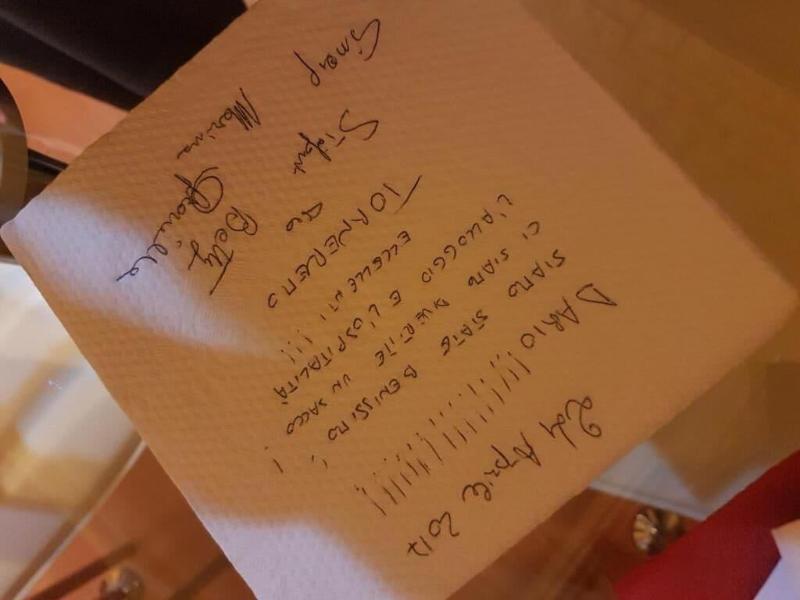 24 Aprile 2017
DARIO!!!!!!!!!!!!!
SIAMO STATE BENISSIMO,
CI SIAMO DIVERTITE UN SACCO!
L'ALLOGGIO E L'OSPITALITÀ
ECCELLENTI!!!
TORNEREMO
Betty
Marina